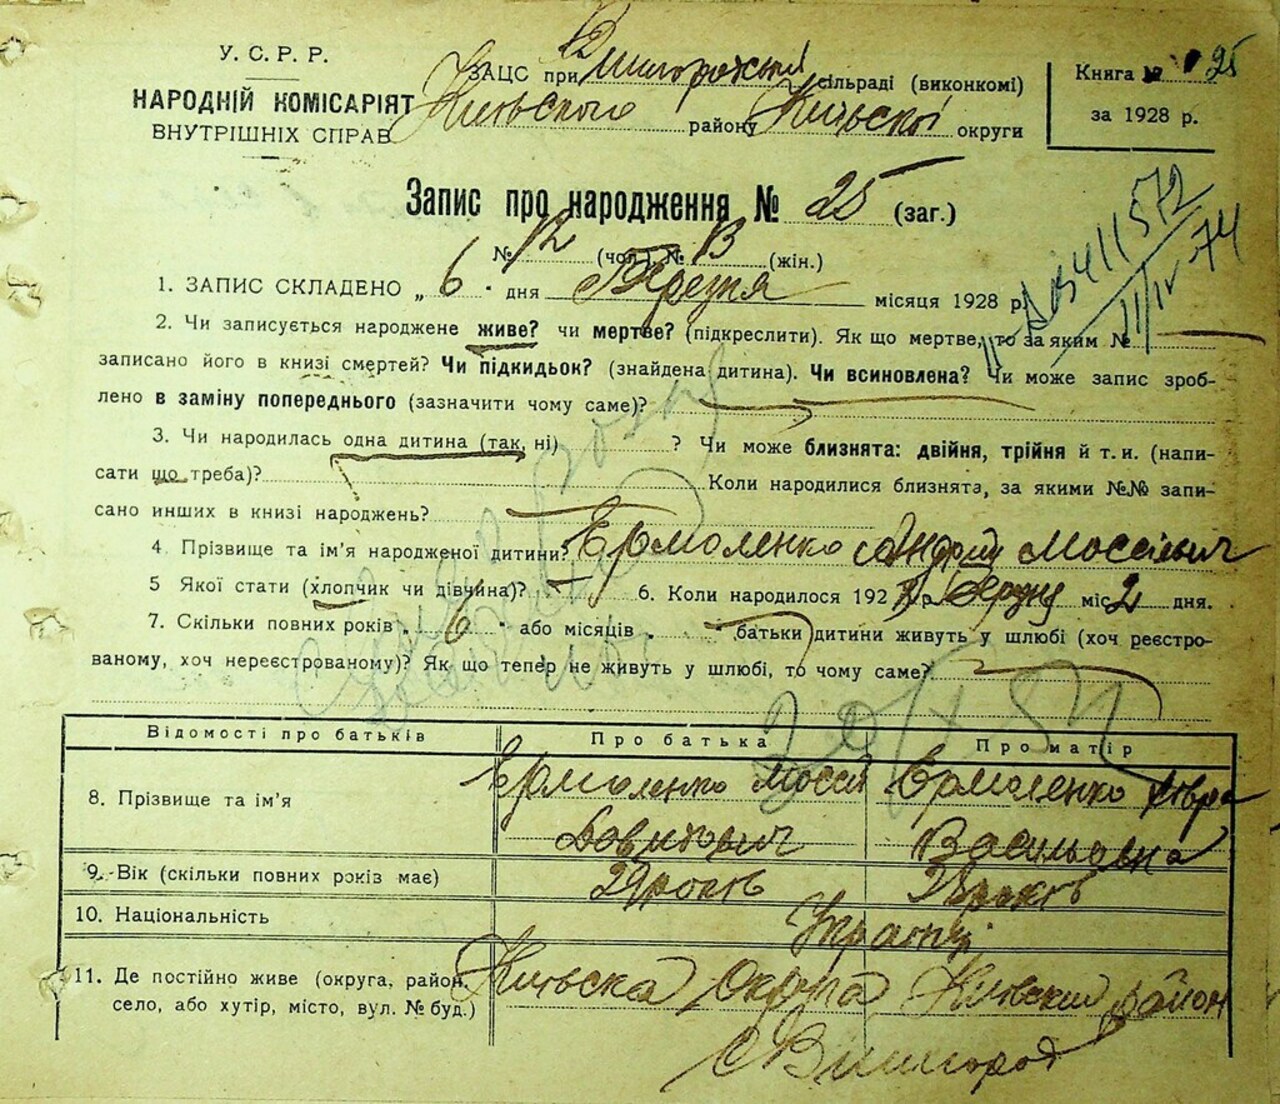 У. С. Р. Р.
НАРОДНІЙ КОМІСАРІЯТ
ВНУТРІШНІХ СПРАВ
ЗАЦС при Вишгородській сільраді (виконкомі)
Київського району Київської округи
Книга № 25
за 1928 р.
Запис про народження № 25 (заг.)
№ 12 (чол.) № 13 (жін.)
1. ЗАПИС СКЛАДЕНО „ 6 " дня Березня місяця 1928 р.
2. Чи записується народжене живе? чи мертве? (підкреслити). Як що мертве, то за яким №
записано його в книзі смертей? Чи підкидьок? (знайдена дитина). Чи всиновлена? Чи може запис зроб-
лено в заміну попереднього (зазначити чому саме)?
3. Чи народилась одна дитина (так, ні) ? Чи може близнята: двійня, трійня й т. и. (напи-
сати що треба)? Коли народилися близнята, за якими №№ запи-
сано инших в книзі народжень?
4. Прізвище та ім'я народженої дитини? Ермоленко Андрий
5 Якої стати (хлопчик чи дівчина)? 6. Коли народилося 192 8 р. міс. 2 дня.
7. Скільки повних років „ 6 " або місяців „ " батьки дитини живуть у шлюбі (хоч реєстро-
ваному, хоч нереєстрованому)? Як що тепер не живуть у шлюбі, то чому саме?
Відомості про батьків Про батька Про матір
8. Прізвище та ім'я Ермоленко Мосій Ермоленко
Давитович Васильовна
9. Вік (скільки повних років має) 29 років років
10. Національність Украінці
11. Де постійно живе (округа, район, Київська Округа Київский район
село, або хутір, місто, вул. № буд.) с Вишгород